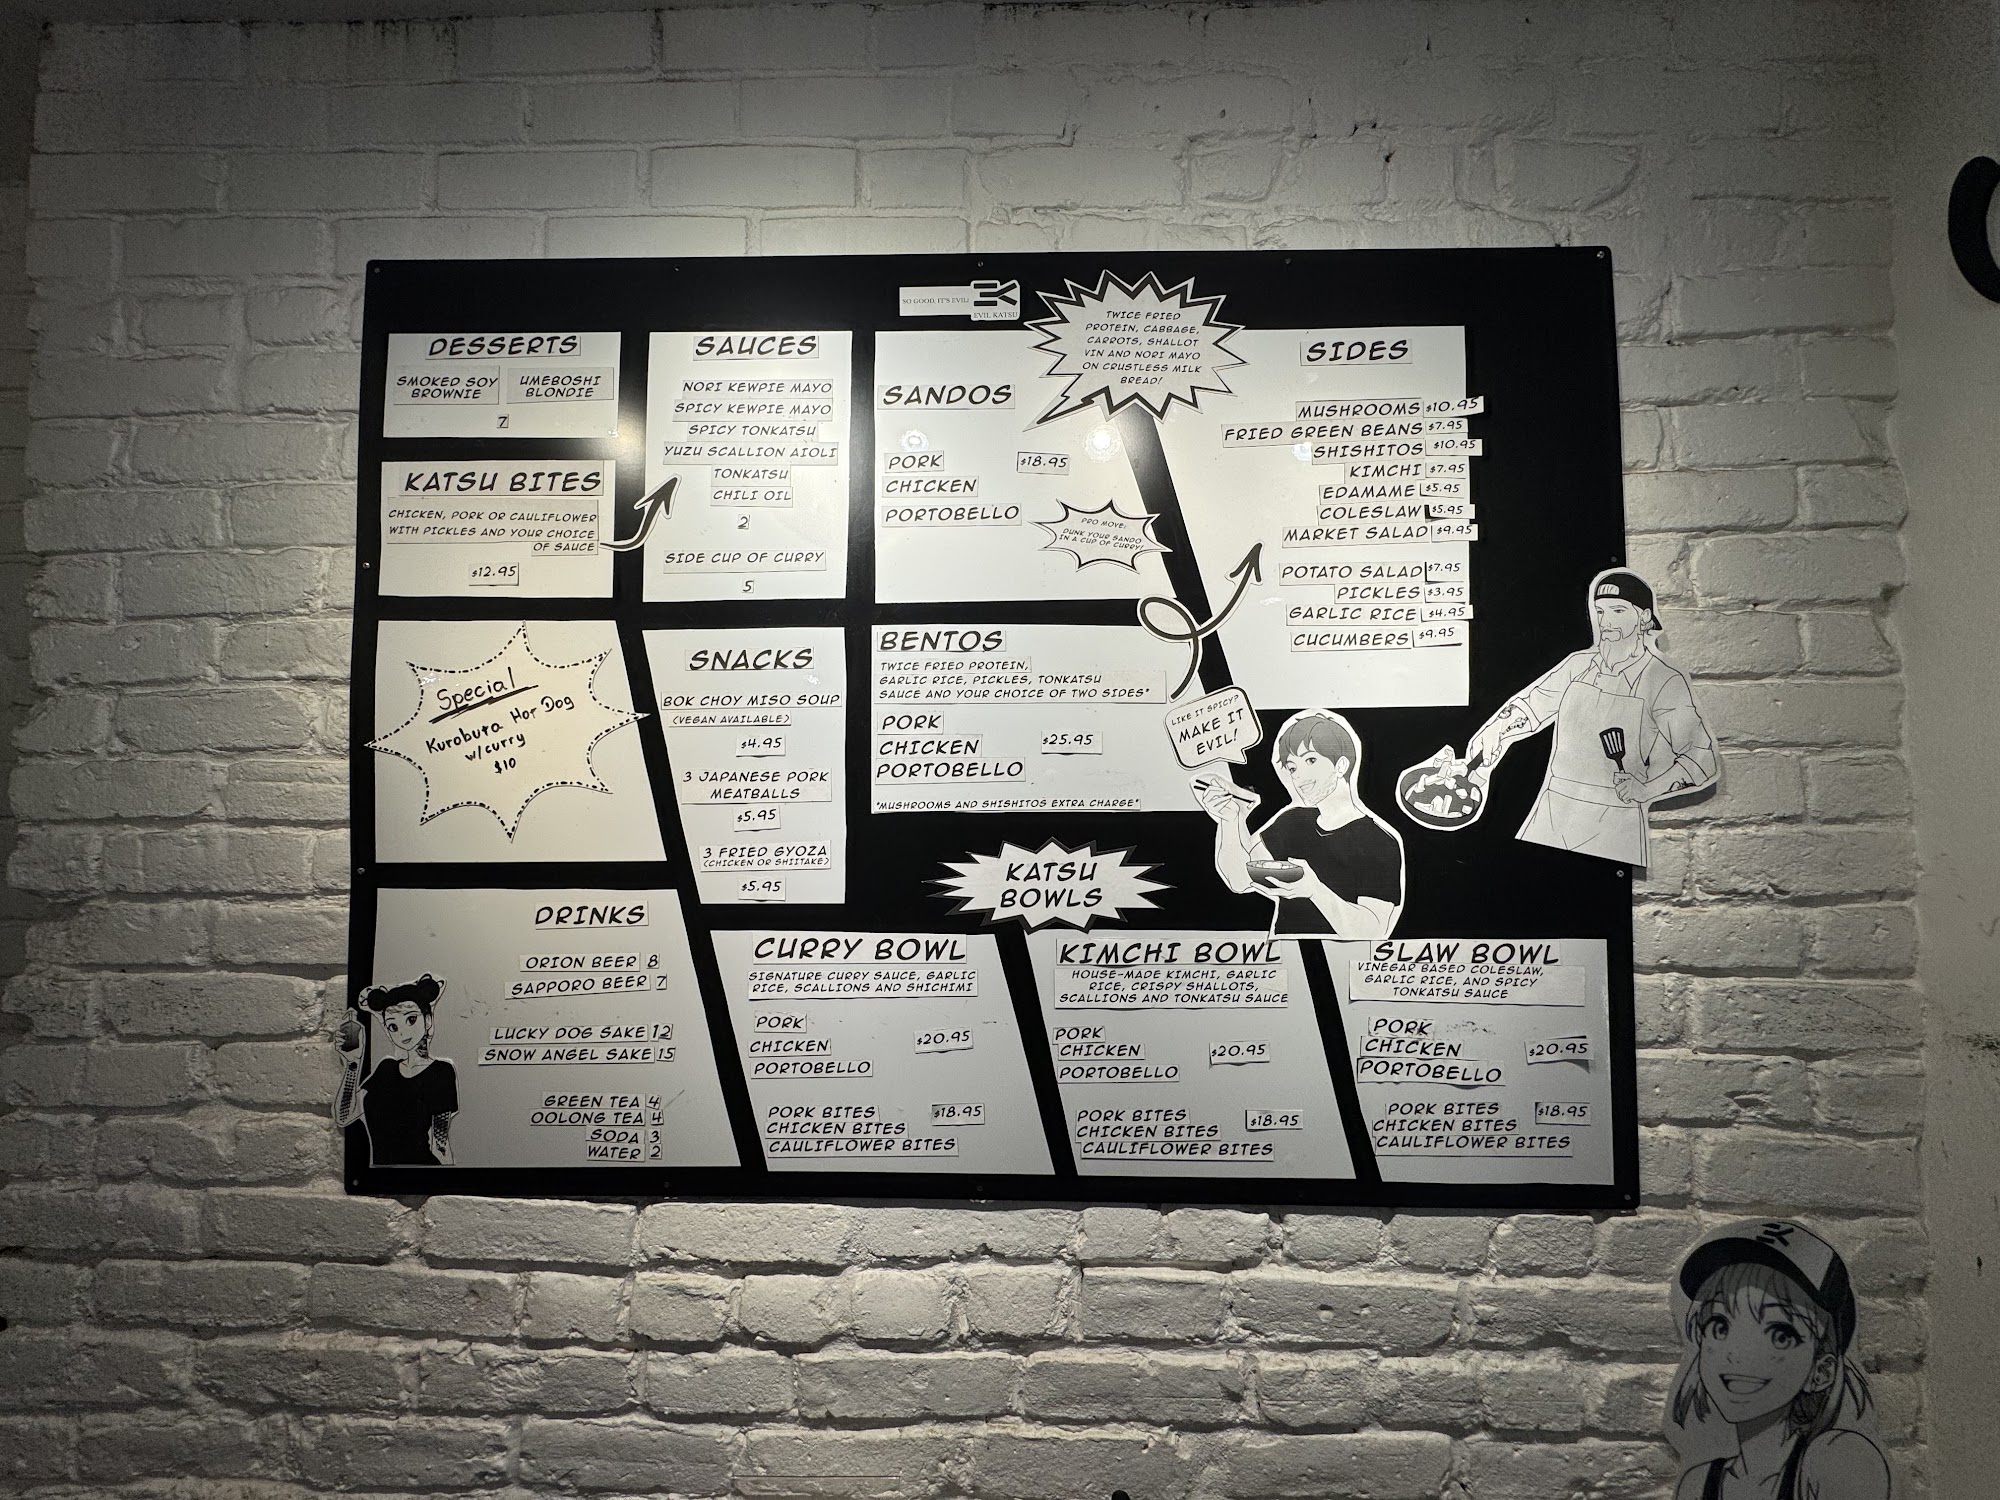 SO GOOD, IT'S EVIL!
EVIL KATSU
DESSERTS
SMOKED SOY
BROWNIE
UMEBOSHI
BLONDIE
7
KATSU BITES
CHICKEN, PORK OR CAULIFLOWER
WITH PICKLES AND YOUR CHOICE
OF SAUCE
$12.95
SAUCES
NORI KEWPIE MAYO
SPICY KEWPIE MAYO
SPICY TONKATSU
YUZU SCALLION AIOLI
TONKATSU
CHILI OIL
2
SIDE CUP OF CURRY
5
SANDOS
TWICE FRIED
PROTEIN, CABBAGE,
CARROTS, SHALLOT
VIN AND NORI MAYO
ON CRUSTLESS MILK
BREAD!
PORK $18.95
CHICKEN
PORTOBELLO
PRO MOVE:
DUNK YOUR SANDO
IN A CUP OF CURRY!
SIDES
MUSHROOMS $10.95
FRIED GREEN BEANS $7.95
SHISHITOS $10.95
KIMCHI $7.95
EDAMAME $5.95
COLESLAW $5.95
MARKET SALAD $9.95
POTATO SALAD $7.95
PICKLES $3.95
GARLIC RICE $4.95
CUCUMBERS $9.95
Special
Kurobuta Hot Dog
w/curry
$10
SNACKS
BOK CHOY MISO SOUP
(VEGAN AVAILABLE)
$4.95
3 JAPANESE PORK
MEATBALLS
$5.95
3 FRIED GYOZA
(CHICKEN OR SHIITAKE)
$5.95
BENTOS
TWICE FRIED PROTEIN,
GARLIC RICE, PICKLES, TONKATSU
SAUCE AND YOUR CHOICE OF TWO SIDES*
PORK
CHICKEN $25.95
PORTOBELLO
*MUSHROOMS AND SHISHITOS EXTRA CHARGE*
LIKE IT SPICY?
MAKE IT
EVIL!
DRINKS
ORION BEER 8
SAPPORO BEER 7
LUCKY DOG SAKE 12
SNOW ANGEL SAKE 15
GREEN TEA 4
OOLONG TEA 4
SODA 3
WATER 2
KATSU
BOWLS
CURRY BOWL
SIGNATURE CURRY SAUCE, GARLIC
RICE, SCALLIONS AND SHICHIMI
PORK
CHICKEN $20.95
PORTOBELLO
PORK BITES $18.95
CHICKEN BITES
CAULIFLOWER BITES
KIMCHI BOWL
HOUSE-MADE KIMCHI, GARLIC
RICE, CRISPY SHALLOTS,
SCALLIONS AND TONKATSU SAUCE
PORK
CHICKEN $20.95
PORTOBELLO
PORK BITES $18.95
CHICKEN BITES
CAULIFLOWER BITES
SLAW BOWL
VINEGAR BASED COLESLAW,
GARLIC RICE, AND SPICY
TONKATSU SAUCE
PORK
CHICKEN $20.95
PORTOBELLO
PORK BITES $18.95
CHICKEN BITES
CAULIFLOWER BITES